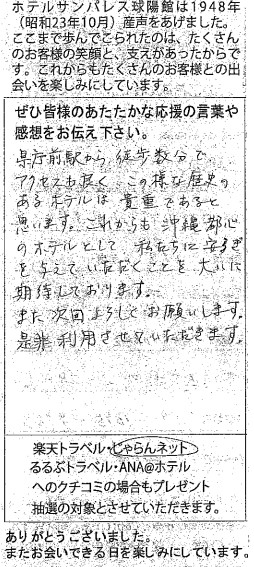 ホテルサンパレス球陽館は1948年
（昭和23年10月）産声をあげました。
ここまで歩んでこられたのは、たくさん
のお客様の笑顔と、支えがあったからで
す。これからもたくさんのお客様との出
会いを楽しみにしています。
ぜひ皆様のあたたかな応援の言葉や
感想をお伝え下さい。
県庁前駅から徒歩数分で
アクセスも良く この様な歴史の
あるホテルは 貴重であると
思います。これからも 沖縄都心
のホテルとして 私たちに安らぎ
を与えていただくことを 大いに
期待しております。
また次回よろしくお願いします。
是非 利用させていただきます。
楽天トラベル・じゃらんネット
るるぶトラベル・ANA@ホテル
へのクチコミの場合もプレゼント
抽選の対象とさせていただきます。
ありがとうございました。
またお会いできる日を楽しみにしています。